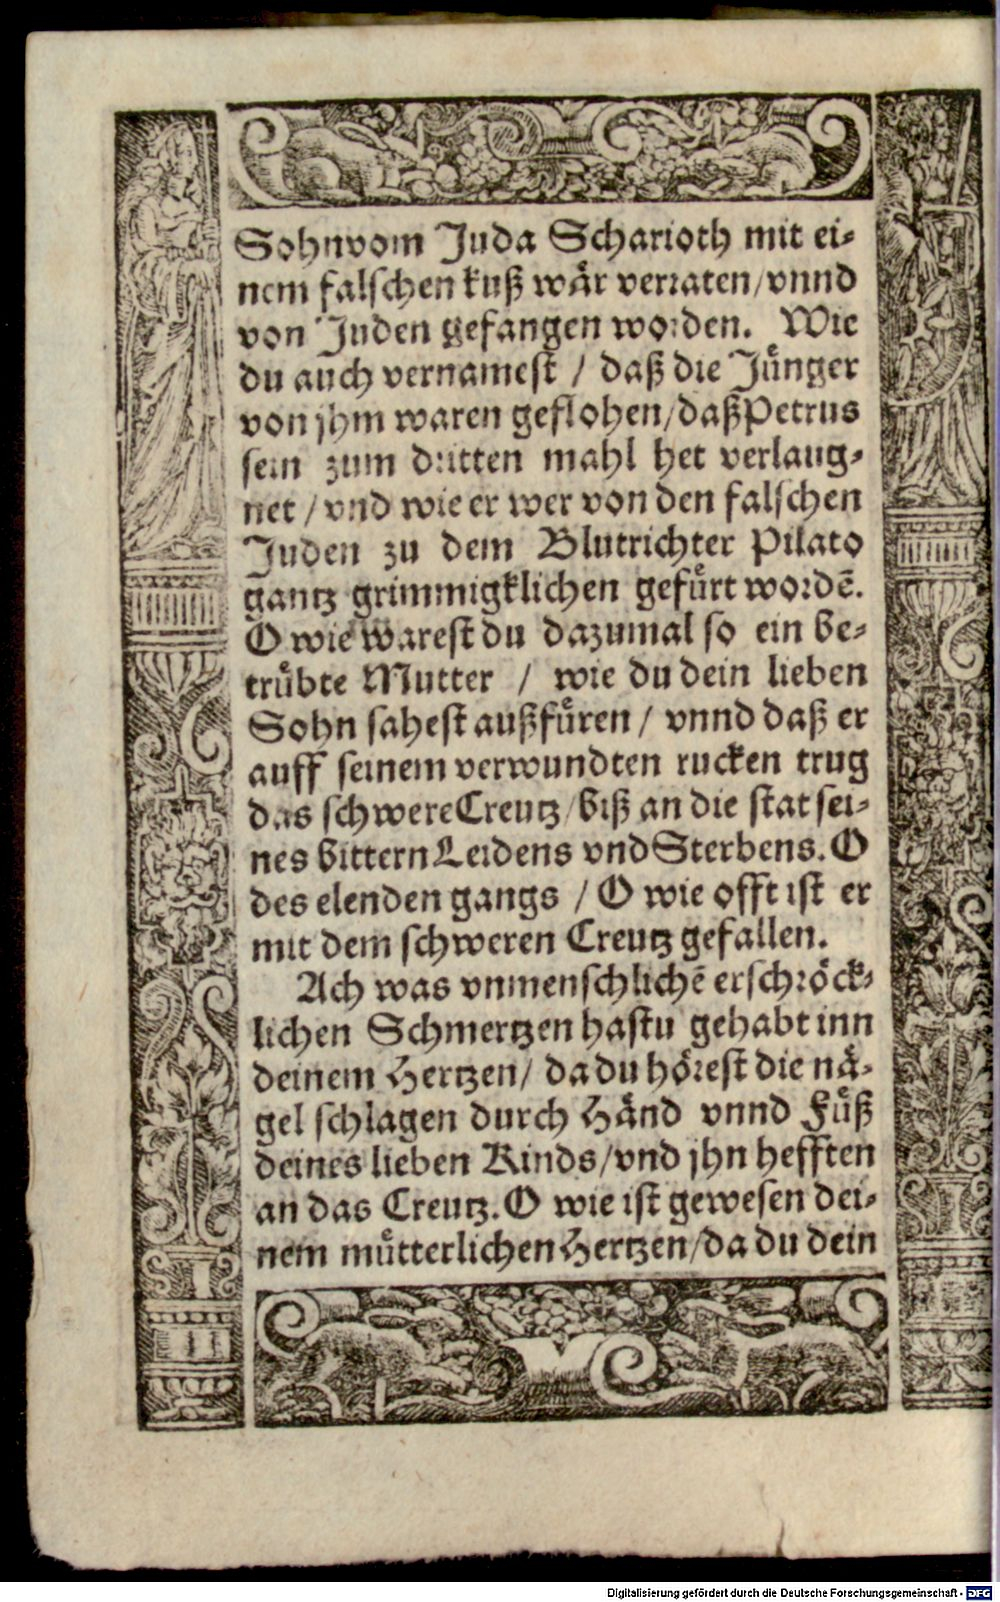 Sohn vom Juda Scharioth mit ei-
nem falschen kuß wår verraten/vnnd
von Juden gefangen worden. Wie
du auch vernamest / daß die Jůnger
von jhm waren geflohen/daß Petrus
sein zum dritten mahl het verlaug-
net / vnd wie er wer von den falschen
Juden zu dem Blutrichter Pilato
gantz grimmigklichen gefůrt wordē.
O wie warest du dazumal so ein be-
trůbte Mutter / wie du dein lieben
Sohn sahest außfůren / vnnd daß er
auff seinem verwundten rucken trug
das schwere Creutz/biß an die stat sei-
nes bittern Leidens vnd Sterbens. O
des elenden gangs / O wie offt ist er
mit dem schweren Creutz gefallen.
Ach was vnmenschlichē erschröck-
lichen Schmertzen hastu gehabt inn
deinem Hertzen/ da du hörest die nä-
gel schlagen durch Händ vnnd Fůß
deines lieben Kinds/vnd jhn hefften
an das Creutz. O wie ist gewesen dei-
nem můtterlichen Hertzen/da du dein
Digitalisierung gefördert durch die Deutsche Forschungsgemeinschaft - DFG